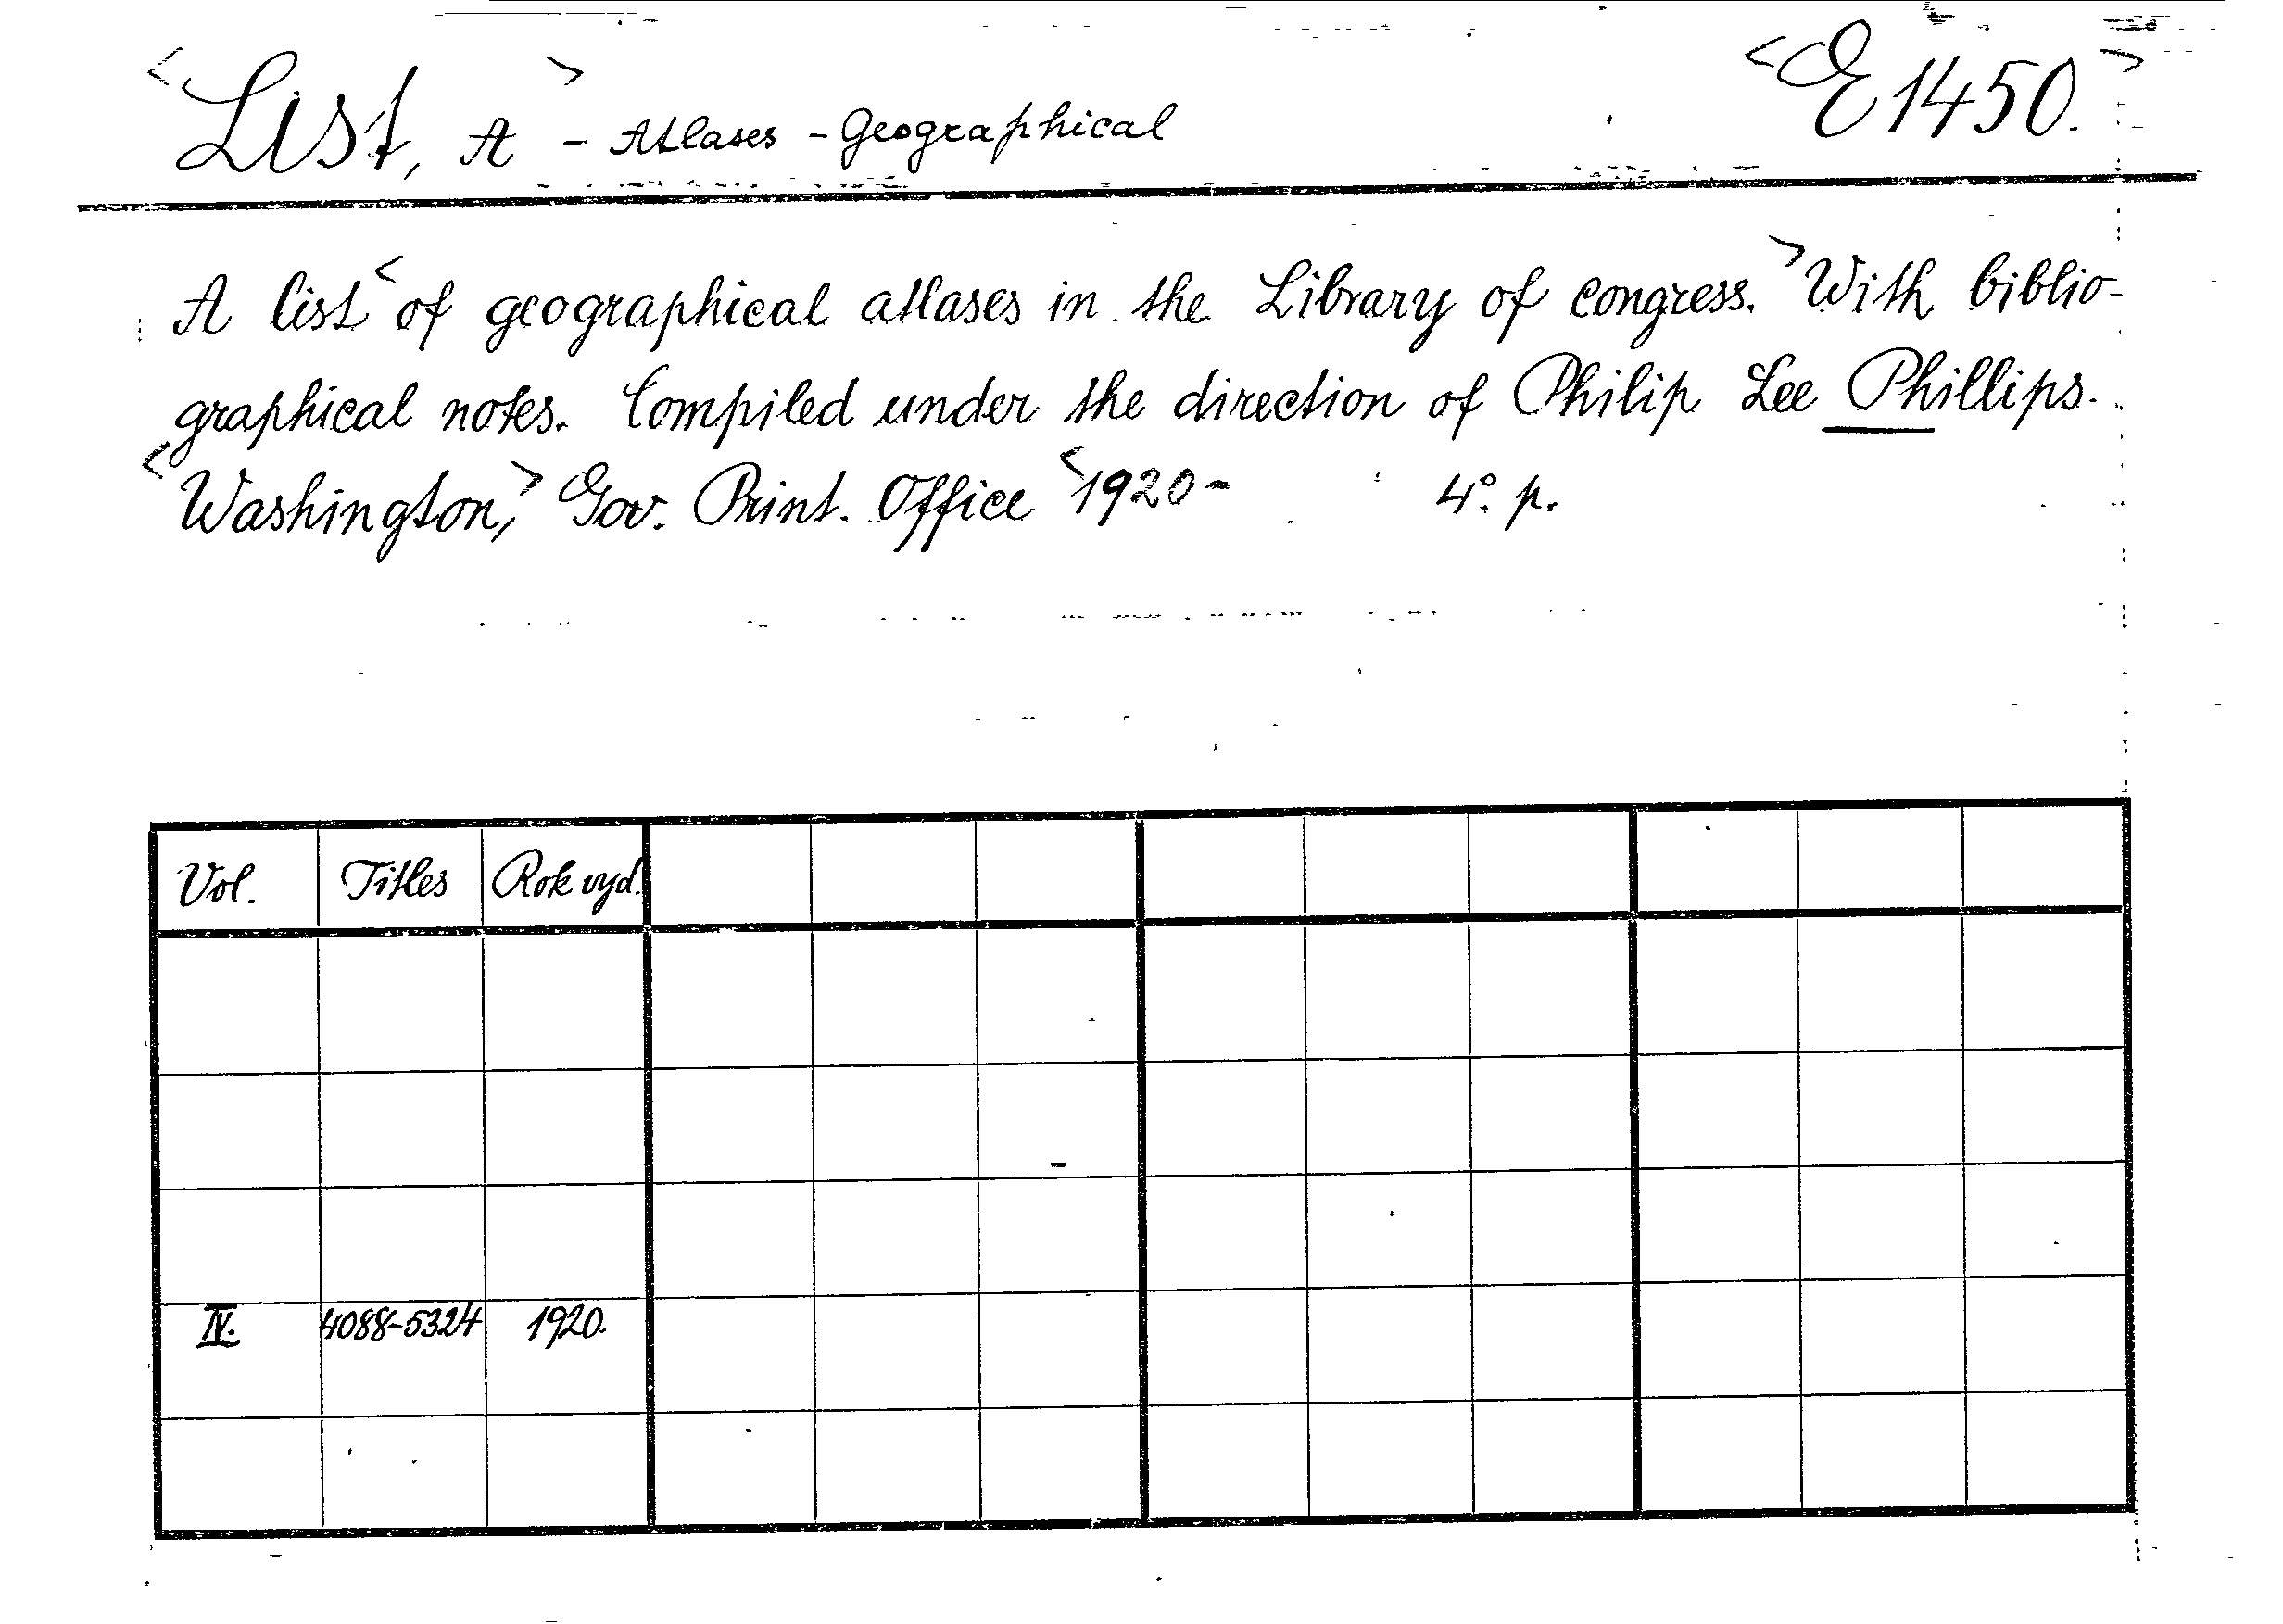 <List, A> - Atlases - Geographical <E 1450.>
A list <of geographical atlases in the Library of congress.> With biblio-
graphical notes. Compiled under the direction of Philip Lee Phillips.
<Washington,> Gov. Print. Office <1920- 4°. p.
Vol. Titles Rok vyd.
IV. 4088-5324 1920.